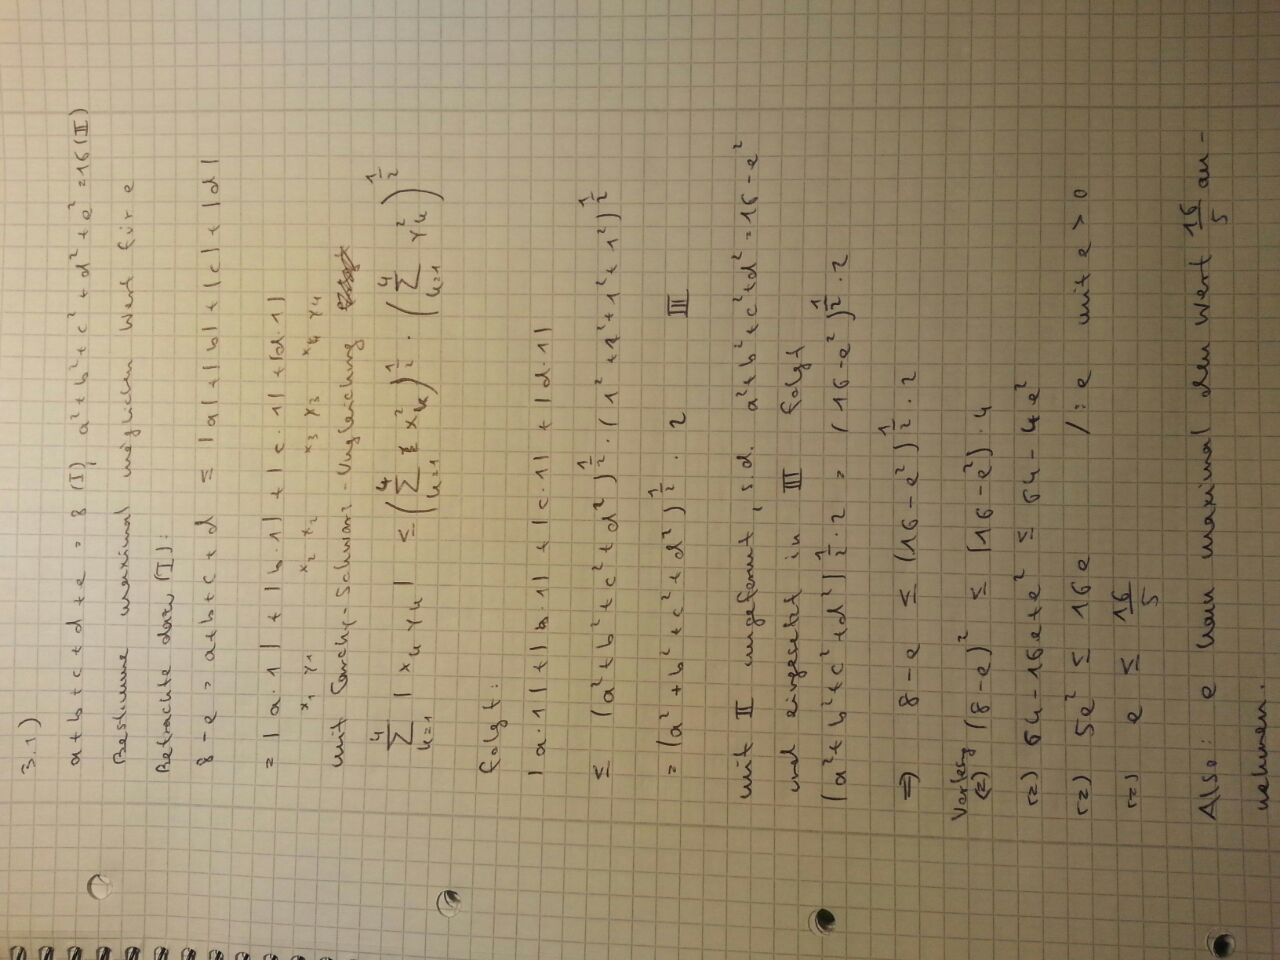 3.1)
a+b+c+d+e = 8 (I), a²+b²+c²+d²+e² = 16 (II)
Bestimme maximal möglichen Wert für e
Betrachte dazu (I):
8-e = a+b+c+d ≤ |a|+|b|+|c|+|d|
= |a·1| + |b·1| + |c·1| + |d·1|
x₁ y₁ x₂ y₂ x₃ y₃ x₄ y₄
mit Cauchy-Schwarz-Ungleichung
∑_{k=1}^{4} |x_k y_k| ≤ (∑_{k=1}^{4} x_k²)^{1/2} · (∑_{k=1}^{4} y_k²)^{1/2}
folgt:
|a·1| + |b·1| + |c·1| + |d·1|
≤ (a²+b²+c²+d²)^{1/2} · (1²+1²+1²+1²)^{1/2}
= (a²+b²+c²+d²)^{1/2} · 2 III
mit II umgeformt, s.d. a²+b²+c²+d² = 16-e²
und eingesetzt in III folgt
(a²+b²+c²+d²)^{1/2} · 2 = (16-e²)^{1/2} · 2
=> 8-e ≤ (16-e²)^{1/2} · 2
(=) (8-e)² ≤ (16-e²) · 4
(=) 64-16e+e² ≤ 64-4e²
(=) 5e² ≤ 16e /:e mit e > 0
(=) e ≤ 16/5
Also: e kann maximal den Wert 16/5 an-
nehmen.